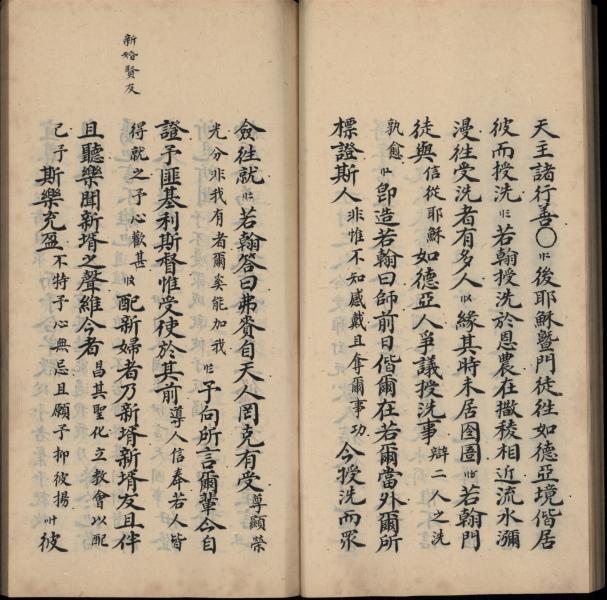 天主諸行善〇廿二後耶穌暨門徒徃如德亞境偕居
彼而授洗廿三若翰授洗於恩農在撒稜相近流水瀰
漫徃受洗者有多人廿四緣其時未居囹圄廿五若翰門
徒與信從耶穌如德亞人爭議授洗事辯二人之洗
孰愈廿六卽造若翰曰師前日偕爾在若爾當外爾所
標證斯人非惟不知感戴且奪爾事功今授洗而眾
僉徃就廿七若翰答曰弗賚自天人罔克有受尊顯榮
光分非我有者爾奚能加我廿八予向所言爾輩今自
證予匪基利斯督惟受使於其前導人信奉若人皆
得就之予心歡甚廿九配新婦者乃新壻新壻友且伴
且聽樂聞新壻之聲維今者昌其聖化立教會以配
己予斯樂充盈不特予心無忌且願予抑彼揚卅彼
新婚賢友